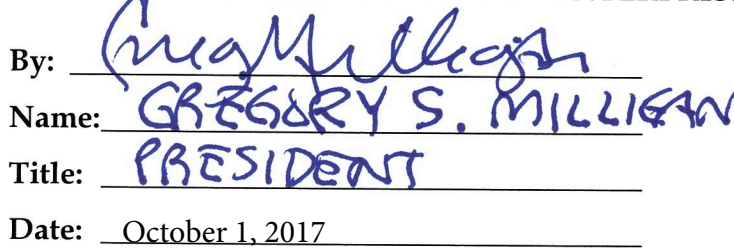 By: Greg Milligan
Name: GREGORY S. MILLIGAN
Title: PRESIDENT
Date: October 1, 2017